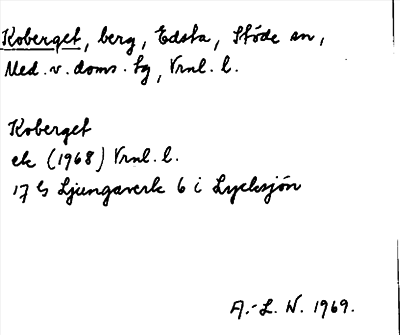 Koberget, berg, Edsta, Stöde sn,
Med. v. doms. tg, Vrnl. l.
Koberget
ek (1968) Vrnl. l.
17 G Ljungaverk 6 i Lycksjön
A.-L. W. 1969.